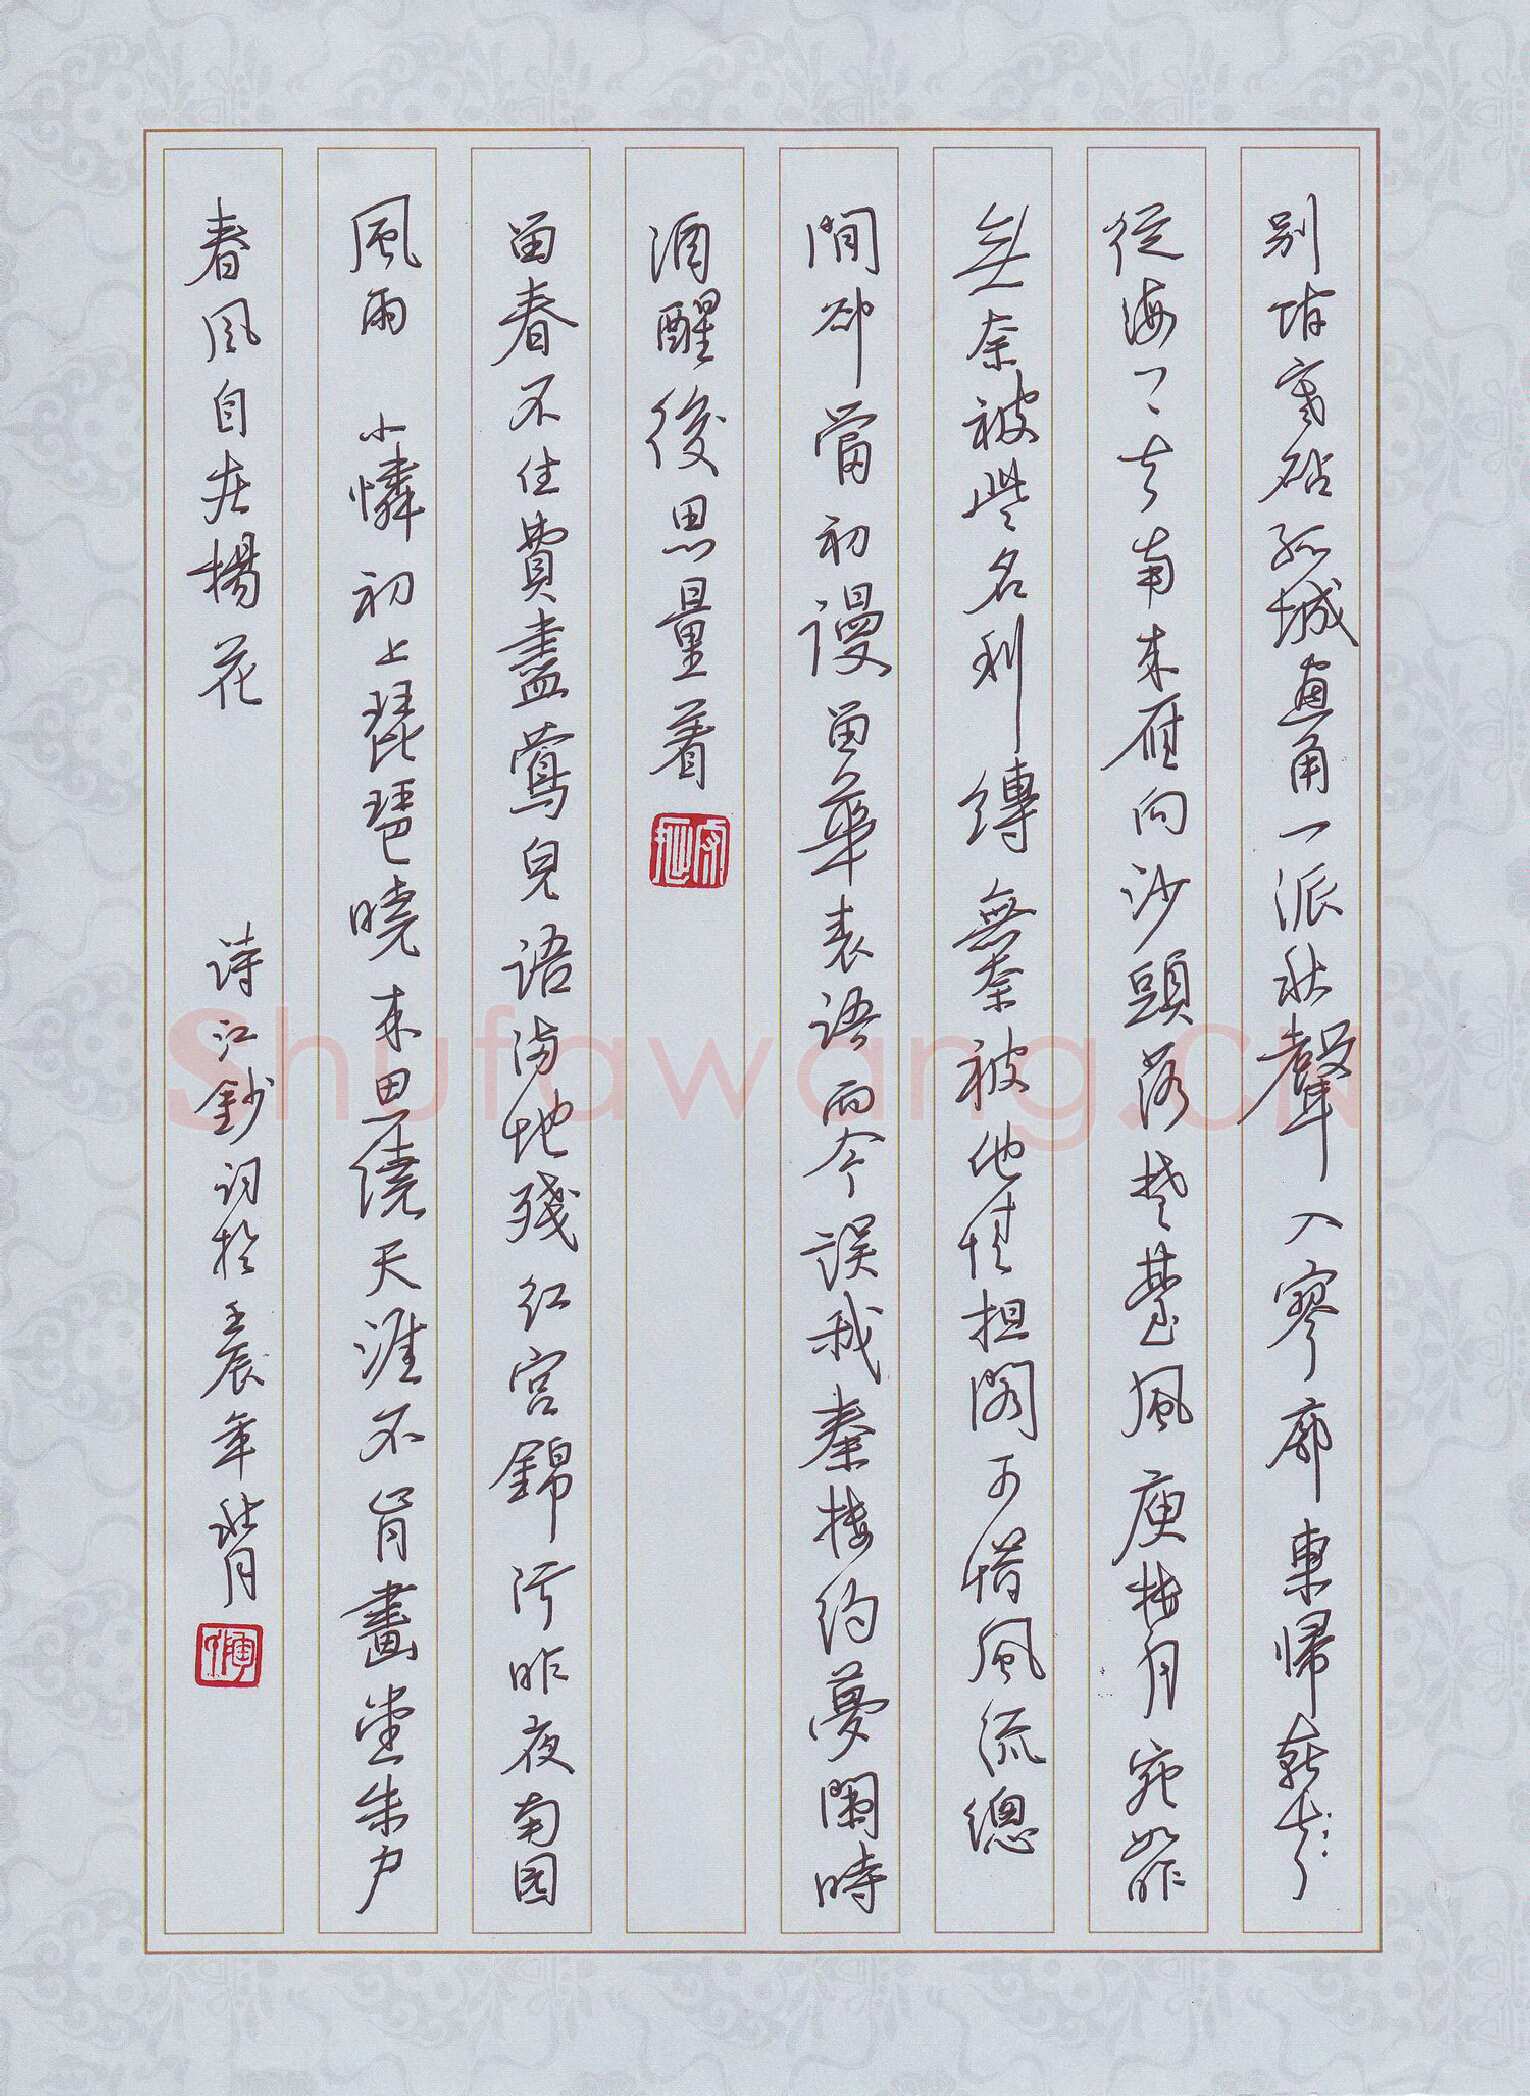 別館寒砧孤城畫角一派秋聲入寥廓東歸燕去
從海上去南来雁向沙頭落楚臺風庾樓月宛如昨
無奈被些名利縛無奈被他情担閣可惜風流總
閒却當初謾留華表語而今誤我秦楼約夢闌時
酒醒後思量着
留春不住費盡鶯兒语满地殘红宫錦污昨夜南园
風雨 小憐初上琵琶曉来思繞天涯不肯畫堂朱户
春风自在楊花 诗江鈔词於壬辰年
Shufawang.CN